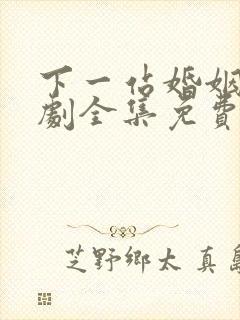 下一站婚姻
劇全集免費
芝野鄉太真島